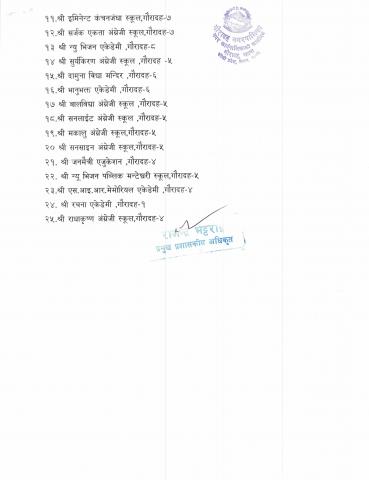 ११.श्री इमिनेन्ट कंचनजंघा स्कूल,गौरादह-७
१२.श्री सर्जक एकता अंग्रेजी स्कूल,गौरादह-७
१३ श्री न्यु भिजन एकेडेमी ,गौरादह-८
१४ श्री सुर्यकिरण अंग्रेजी स्कूल ,गौरादह -५
१५.श्री दामुना विद्या मन्दिर ,गौरादह-६
१६ श्री भानुभक्त एकेडेमी ,गौरादह-६
१७ श्री बालविद्या अंग्रेजी स्कूल ,गौरादह-५
१८.श्री सनलाईट अंग्रेजी स्कूल ,गौरादह-५
१९.श्री मकालु अंग्रेजी स्कूल,गौरादह-५
२० श्री सनसाइन अंग्रेजी स्कूल ,गौरादह-५
२१. श्री जनमैत्री एजुकेशन ,गौरादह-४
२२. श्री न्यू भिजन पब्लिक मन्टेश्वरी स्कूल,गौरादह-५
२३.श्री एस.आइ.आर.मेमोरियल एकेडेमी ,गौरादह-४
२४. श्री रचना एकेडेमी ,गौरादह-१
२५.श्री राधाकृष्ण अंग्रेजी स्कूल,गौरादह-४
राजेन्द्र भट्टराई
प्रमुख प्रशासकीय अधिकृत